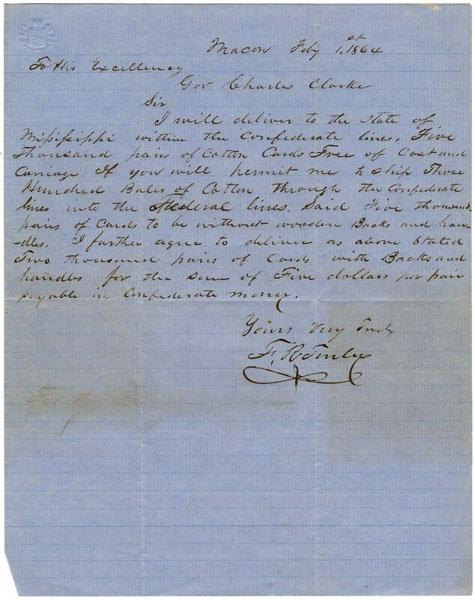 Macon Feby 1st, 1864
To His Excellency
Gov Charles Clarke
Sir
I will deliver to the State of
Mississippi within the Confederate lines, Five
Thousand pairs of Cotton Cards Free of Cost and
Carriage If you will permit me to ship Three
Hundred Bales of Cotton through the Confederate
lines into the Federal lines. Said Five thousand
pairs of Cards to be without wooden Backs and han-
dles. I further agree to deliver as above Stated
Two thousand pairs of Cards with Backs and
handles for the sum of Five dollars per pair
payable in Confederate money.
Yours Very Truly
F. R.